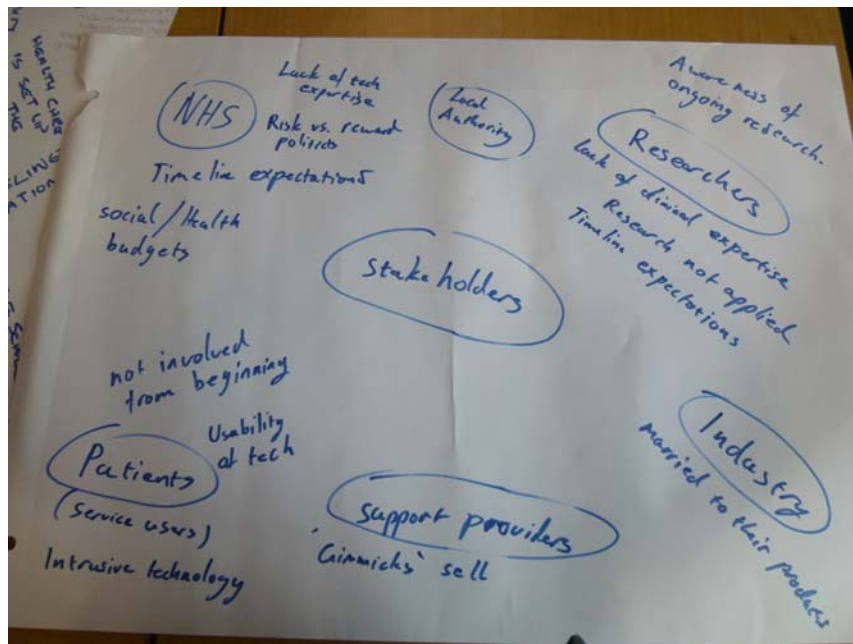 HEALTH CARE
IS SET UP
NHS
Lack of tech
expertise
Risk vs. reward
Timeline expectations
social/Health
budgets
Local
Authority
Awareness of
ongoing research.
Researchers
Lack of clinical expertise
Research not applied
Timeline expectations
Stakeholders
not involved
from beginning
Usability
of tech
Patients
(service users)
Intrusive technology
support providers
'Gimmicks' sell
Industry
married to their products